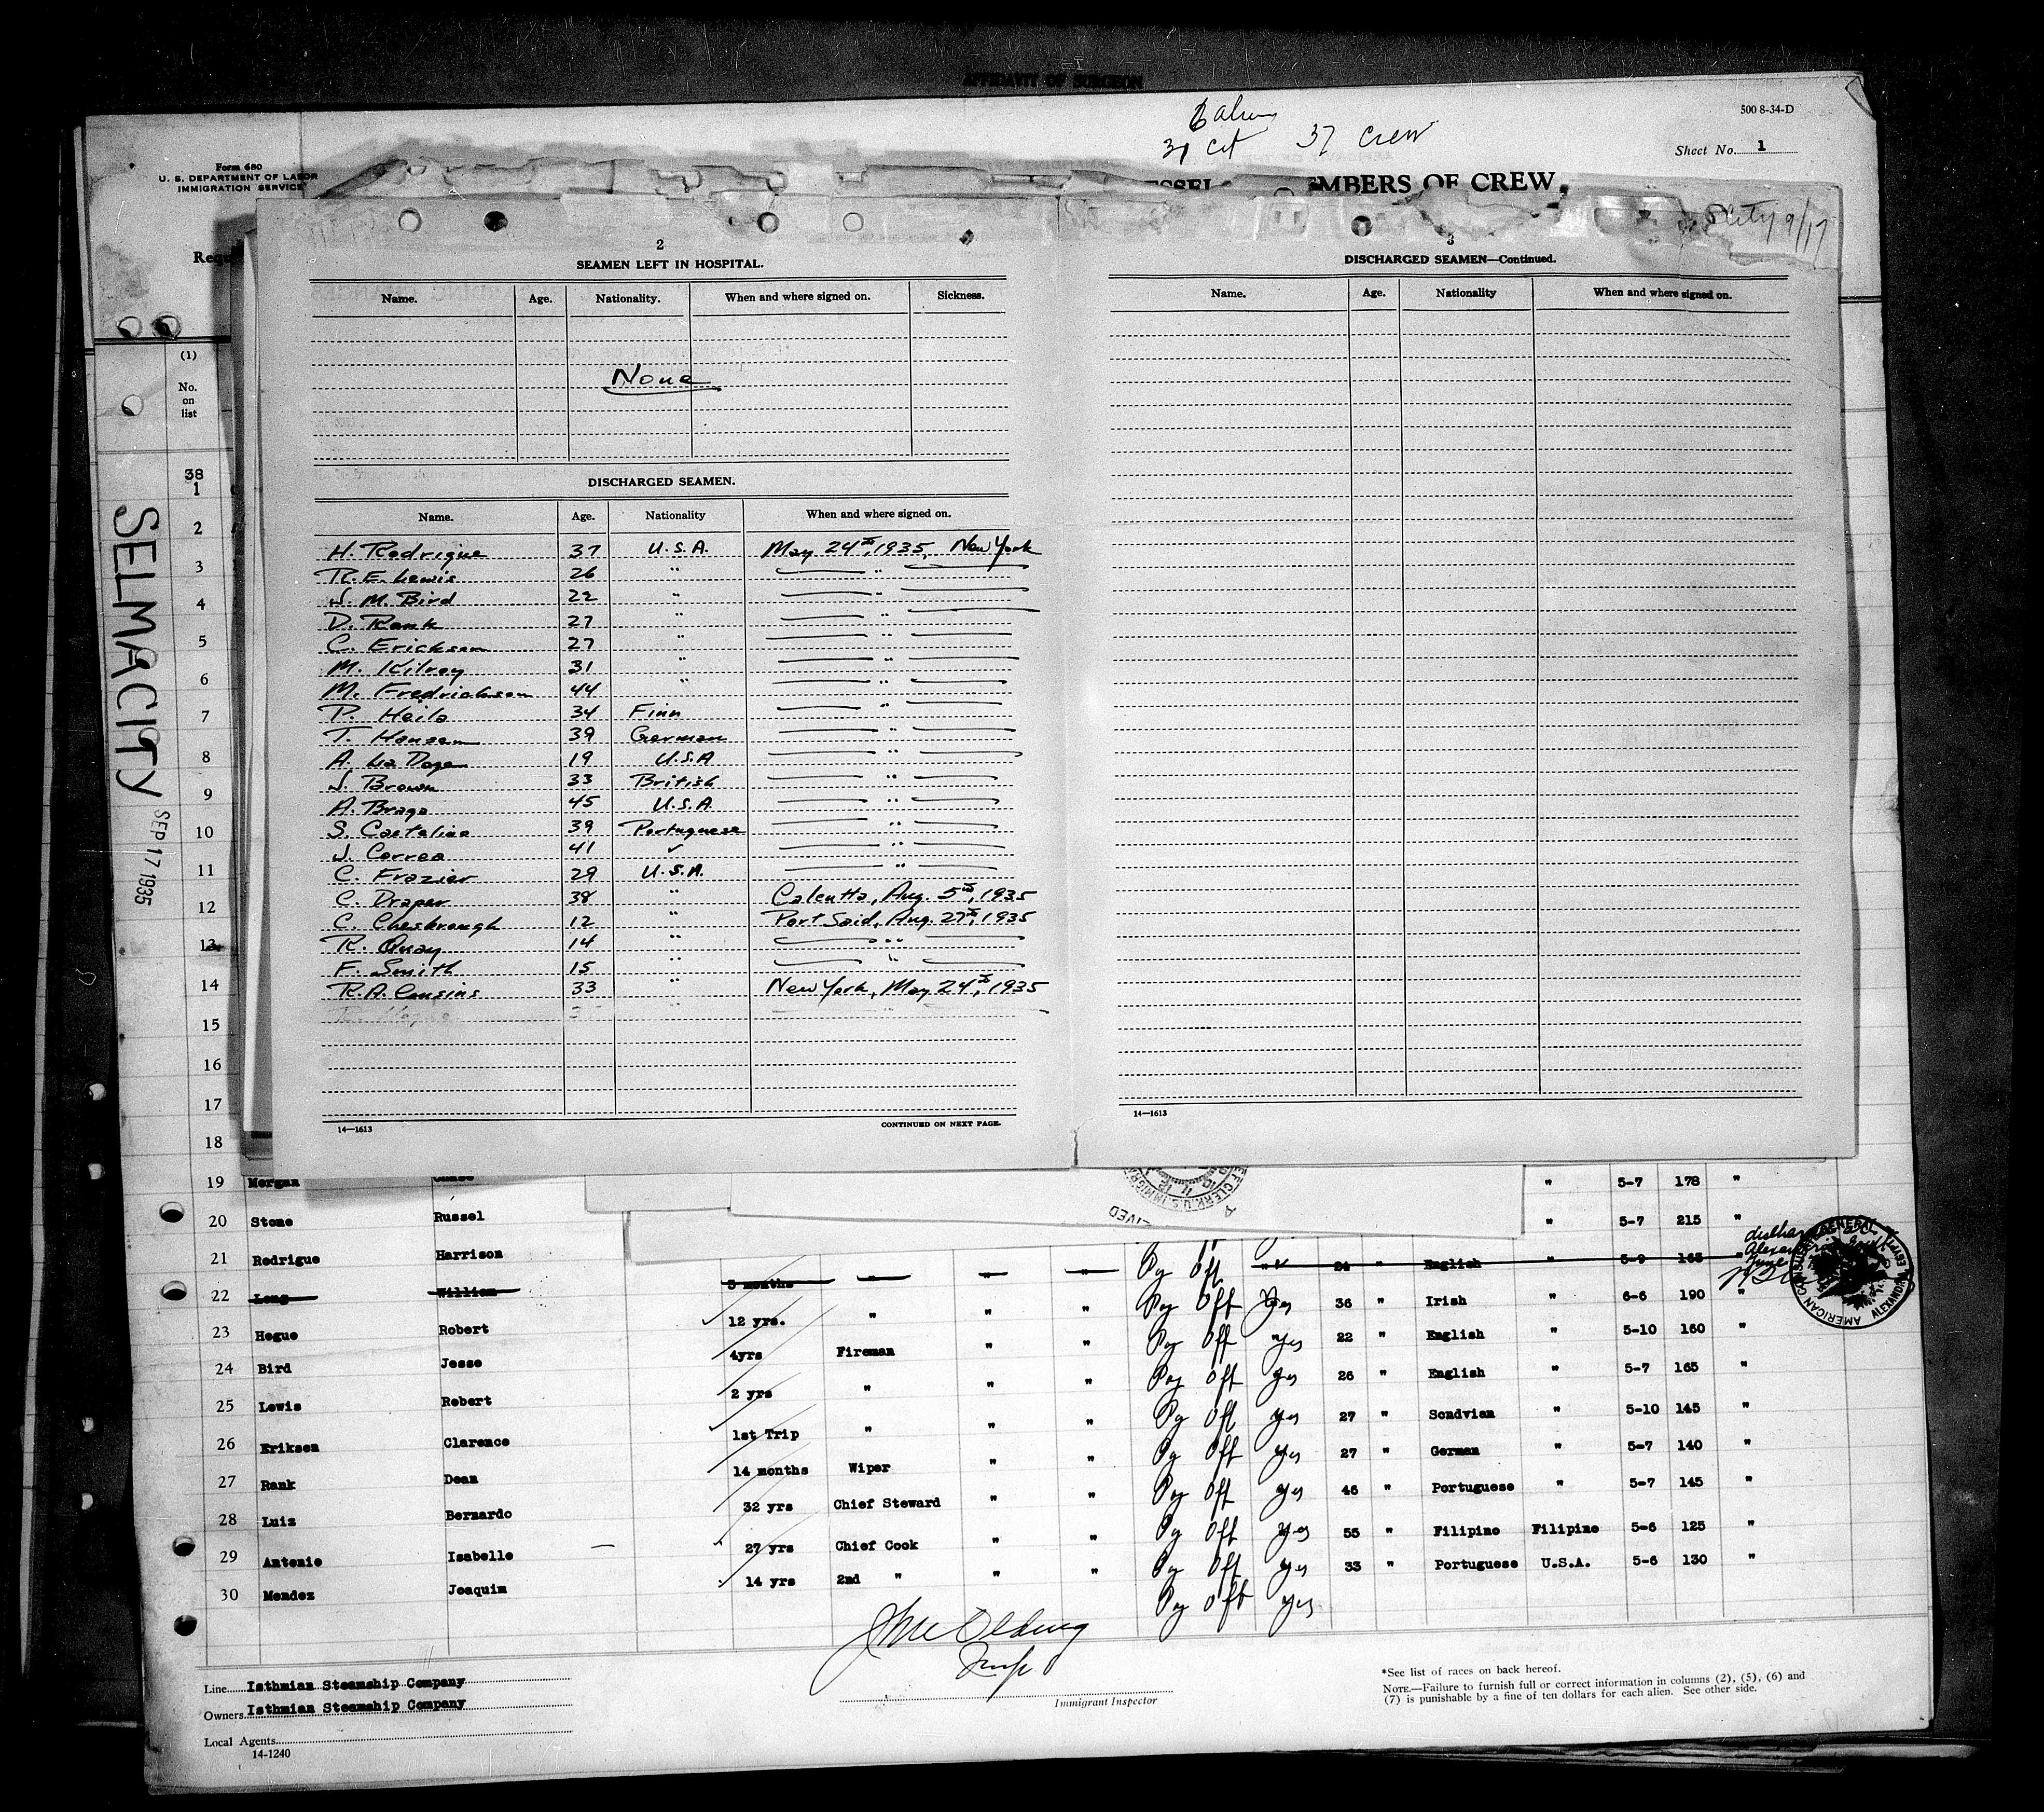 AFFIDAVIT OF SURGEON
500 8-34-D
31 Cit 37 Crew
Sheet No. 1
Form 680
U. S. DEPARTMENT OF LABOR
IMMIGRATION SERVICE
MEMBERS OF CREW
9/17
2
SEAMEN LEFT IN HOSPITAL.
Name. Age. Nationality. When and where signed on. Sickness.
None
DISCHARGED SEAMEN.
Name. Age. Nationality When and where signed on.
H. Rodrigue 37 U.S.A. May 24th, 1935, New York
R. E. Lewis 26 " "
J. M. Bird 22 " "
D. Rank 27 " "
C. Ericksen 27 " "
M. Kilroy 31 " "
M. Fredrickson 44 " "
P. Heilo 34 Finn "
T. Hansen 39 German "
A. La Dage 19 U.S.A "
J. Brown 33 British "
A. Braga 45 U.S.A. "
S. Castelino 39 Portuguese "
J. Correa 41 "
C. Frazier 29 U.S.A. "
C. Draper 38 " Calcutta, Aug. 5th, 1935
C. Chesbrough 12 " Port Said, Aug. 27th, 1935
R. Quay 14 " "
F. Smith 15 " "
R.A. Cousins 33 " New York, May 24th, 1935
14—1613 CONTINUED ON NEXT PAGE.
3
DISCHARGED SEAMEN—Continued.
Name. Age. Nationality When and where signed on.
14—1613
(1)
No.
on
list
38
1
2
3
4
5
6
7
8
9
10
11
12
13
14
15
16
17
18
SELMACITY
SEP 17 1935
19 Morgan " 5-7 178 "
20 Stone Russel " 5-7 215 "
21 Redrigue Harrison Pg Off " 24 " English " 5-9 165 "
22 Long William 3 months " " " Pg Off Yes 36 " Irish " 6-6 190 "
23 Hogue Robert 12 yrs. " " " Pg Off yes 22 " English " 5-10 160 "
24 Bird Jesse 4yrs Fireman " " Pg Off yes 26 " English " 5-7 165 "
25 Lewis Robert 2 yrs " " " Pg Off yes 27 " Scndvian " 5-10 145 "
26 Eriksen Clarence 1st Trip " " " Pg Off yes 27 " German " 5-7 140 "
27 Rank Dean 14 months Wiper " " Pg Off yes 46 " Portuguese " 5-7 145 "
28 Luiz Bernardo 32 yrs Chief Steward " " Pg Off yes 55 " Filipino Filipino 5-6 125 "
29 Antonio Isabelle 27 yrs Chief Cook " " Pg Off yes 33 " Portuguese U.S.A. 5-6 130 "
30 Mendez Joaquim 14 yrs 2nd " " " Pg Off yes
AMERICAN CONSULATE GENERAL
ALEXANDRIA, EGYPT
Line Isthmian Steamship Company
Owners Isthmian Steamship Company
Local Agents
14-1240
Immigrant Inspector
*See list of races on back hereof.
NOTE.—Failure to furnish full or correct information in columns (2), (5), (6) and
(7) is punishable by a fine of ten dollars for each alien. See other side.